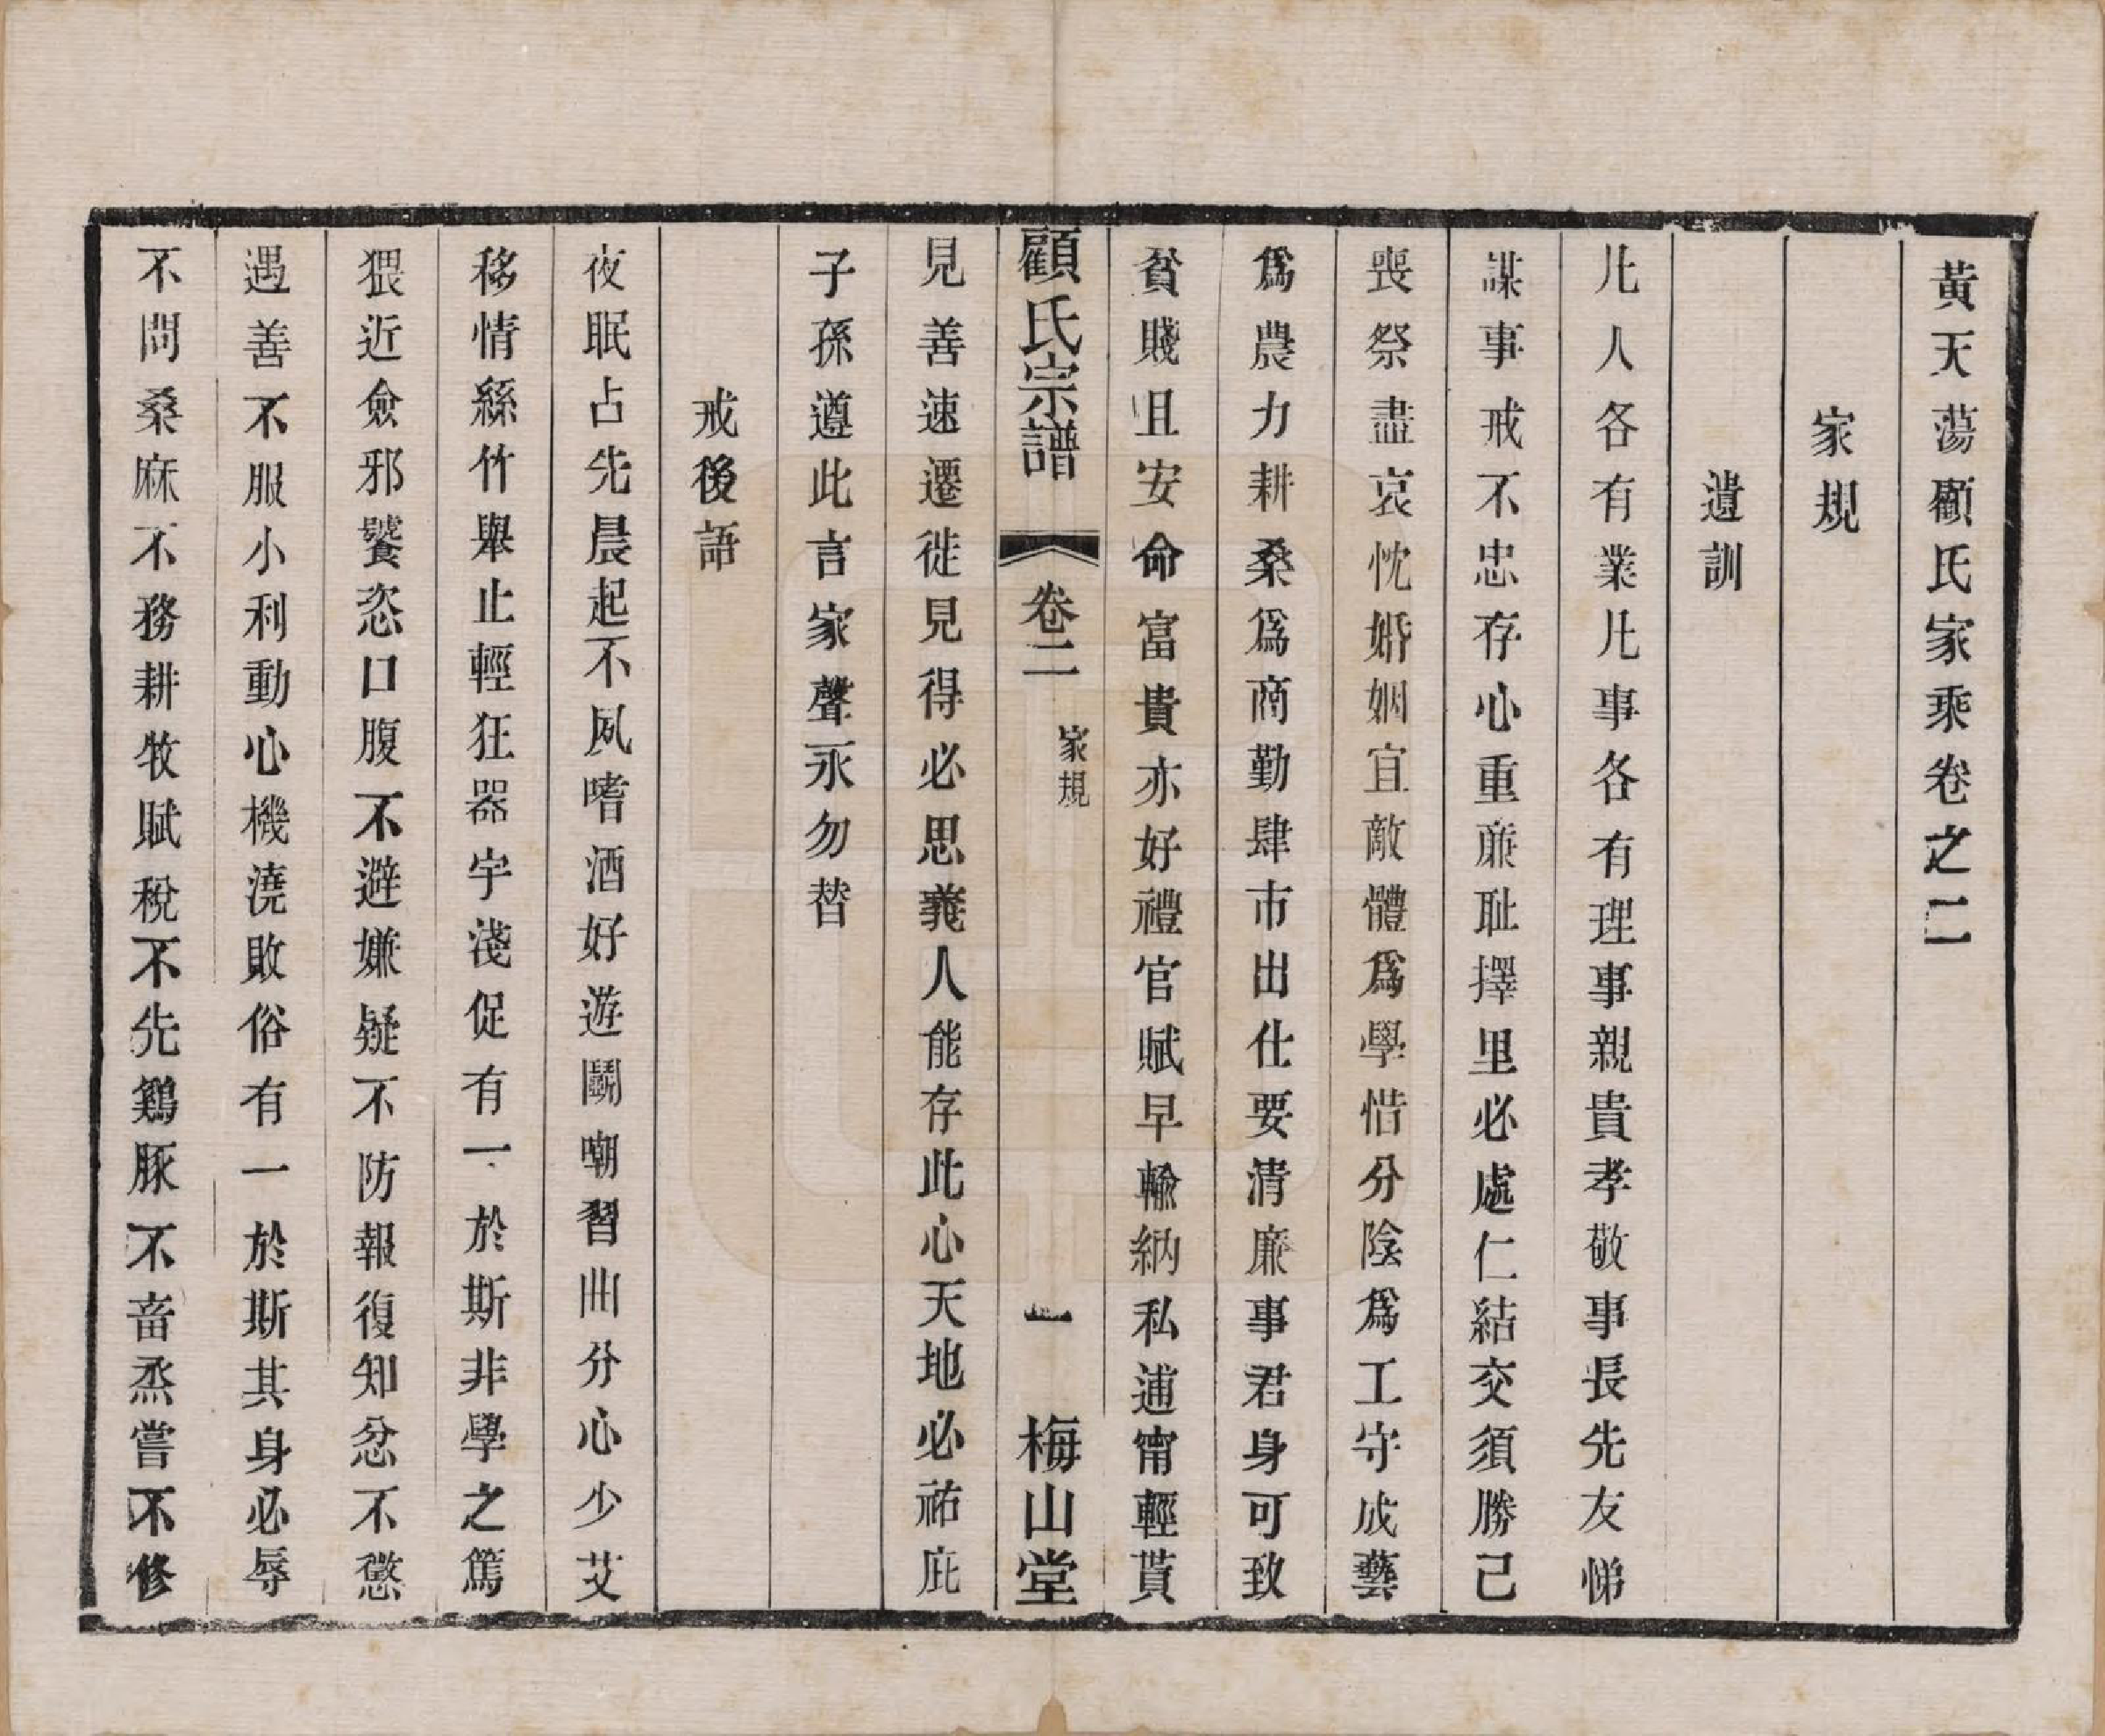 黃天蕩顧氏家乘卷之二
家規
遺訓
凡人各有業凡事各有理事親貴孝敬事長先友悌
謀事戒不忠存心重廉耻擇里必處仁結交須勝己
喪祭盡哀忱婚姻宜敵體爲學惜分陰爲工守成藝
爲農力耕桑爲商勤肆市出仕要清廉事君身可致
貧賤且安命富貴亦好禮官賦早輸納私逋甯輕貰
顧氏宗譜
卷二
家規
一
梅山堂
見善速遷徙見得必思義人能存此心天地必祐庇
子孫遵此言家聲永勿替
戒後語
夜眠占先晨起不夙嗜酒好遊鬭嘲習曲分心少艾
移情絲竹舉止輕狂器宇淺促有一於斯非學之篤
猥近僉邪饕恣口腹不避嫌疑不防報復知忿不懲
遇善不服小利動心機澆敗俗有一於斯其身必辱
不問桑麻不務耕牧賦稅不先鷄豚不畜烝嘗不修